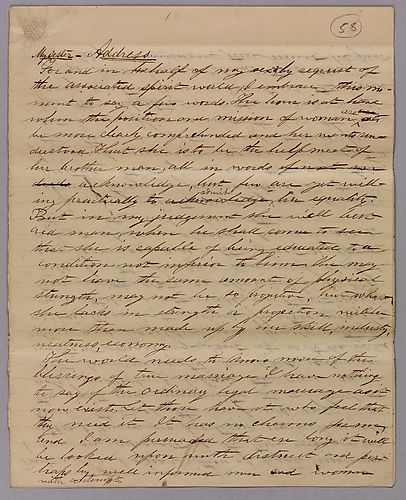 58
My Sister - Address
For and in behalf of my sex by request of
the associated spirit world, I embrace this mo-
ment to say a few words. The hour is at hand
when the position and mission of woman
be more clearly comprehended and her
derstood. That she is to be the help meet of
her brother man, all in words
acknowledge, but few are yet will-
ing practically to admit her equality.
But in my judgement she will best
aid man, when he shall come to see
that she is capable of being educated to a
condition not inferior to him. She may
not have the same amount of physical
strength, may not be so but what
she lacks in strength or projection will be
more than made up by her skill,
neatness, economy.
The world needs to know more of the
blessings of true marriage. I have nothing
to say of the ordinary legal marriage as it
now exists. Let those have it who feel that
they need it. It has no charms for me,
and I am persuaded that ere long it will
be looked upon with distrust and per-
haps by well informed men and women
with contempt.